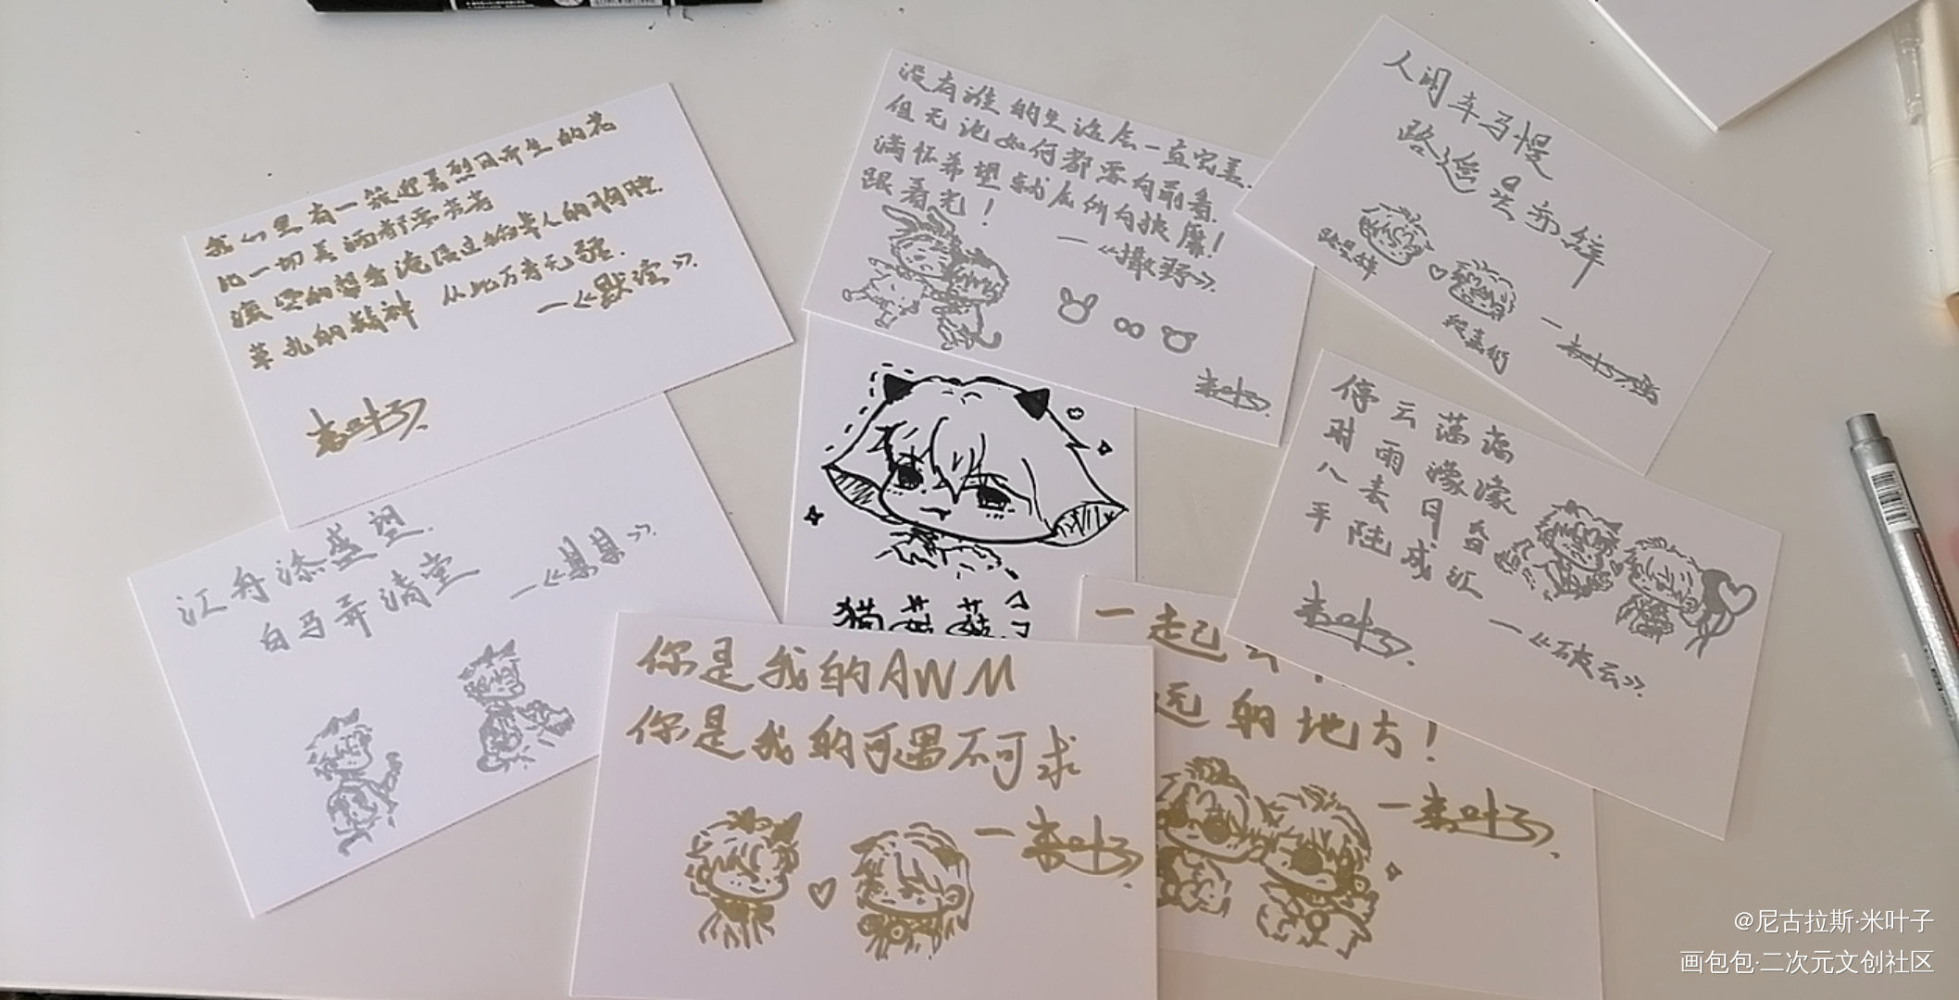 我心里有一簇迎着烈日而生的花
比一切美酒都要芳香
滚烫的馨香淹没过稻草人的胸膛
草扎的精神 从此万寿无疆
—《默读》
米叶子
没有谁的生活会一直完美
但无论如何都要向前看
满怀希望就会所向披靡!
跟着光!
—《撒野》
米叶子
人间车马慢
路遥星亦辞
段嘉衍
停云霭霭
时雨濛濛
八表同昏
平陆成江
—《破云》
米叶子
江舟添盛望
白马弄清堂
—《某某》
猫菇菇
你是我的AWM
你是我的可遇不可求
—米叶子
一起去
远的地方!
—米叶子
@尼古拉斯·米叶子
画包包·二次元文创社区